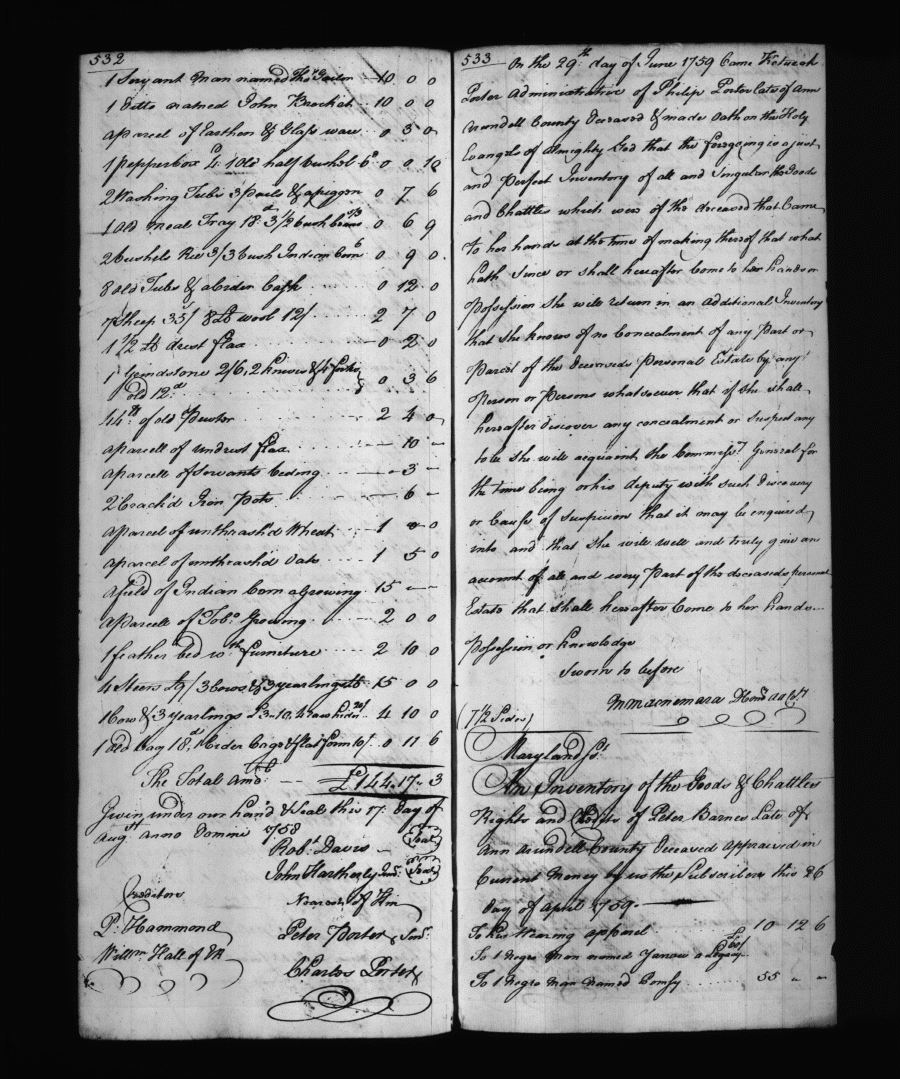 532
1 Servant man named Thos 10 0 0
1 Ditto named John 10 0 0
aparcel of Earthen & Glass ware 0 5 0
1 Pepperbox & 1 old half bushel 0 0 12
2 Washing Tubs 3 pails & a piggon 0 7 6
1 old meal Tray 18d 3 1/2 bush beans 0 6 9
2 bushels Rie 3/ 3 bush Indian Corn 0 9 0
8 old Tubs & a Cyder Cask 0 12 0
7 Sheep 35/ 8 lb wool 12/ 2 7 0
1 1/2 lb drest flax 0 2 0
1 Grindstone 2/6, 2 knives & 4 forks
old 12d 0 3 6
44lb of old Pewter 2 4 0
aparcell of undrest flax - 10 -
aparcell of Servants beding - 3 -
2 Crack'd Iron Pots - 6 -
aparcel of unthrash'd Wheat 1 0 0
aparcel of unthrash'd Oats 1 5 0
a field of Indian Corn a Growing 15 - -
aparcell of Tobo Growing 2 0 0
1 feather bed wth furniture 2 10 0
4 Steers £9/ 3 Cows & 3 yearlings £6 15 0 0
1 Cow & 3 yearlings £3-10, 4 raw hides 20/ 4 10 0
1 old bag 18d, 1 Cyder Cags & flat form 10/ 0 11 6
The Total Amo £144.17.3
Given under our hand & Seals this 17 day of
Augst anno Domini 1758
Robt Davis Seal
John Junr Seal
Creditors
Nearest of Kin
P. Hammond
Peter Porter Senr
Willm Hall of
Charles Porter
533
On the 29th day of June 1759 Came
Porter Administratrix of Philip Porter late of Ann
Arundell County Deceased & made Oath on the Holy
Evangels of Almighty God that the foregoing is a just
and Perfect Inventory of all and Singular the Goods
and Chattles which were of the deceased that Came
to her hands at the time of making thereof that what
hath Since or shall hereafter Come to her hands or
Possession she will return in an additional Inventory
that she knows of no Concealment of any Part or
Parcel of the Deceaseds Personal Estate by any
Person or Persons whatsoever that if she shall
hereafter discover any concealment or Suspect any
to be she will acquaint the Commissy General for
the time being or his deputy with such discovery
or Cause of Suspicion that it may be enquired
into and that she will well and truly give an
account of all and every Part of the deceaseds personal
Estate that shall hereafter Come to her hands
Possession or knowledge
Sworn to before
(7 1/2 Sides)
Maryland Ss
An Inventory of the Goods & Chattles
Rights and Credits of Peter Barnes Late of
Ann Arundell County Deceased appraised in
Current Money by us the Subscribers this 26
day of April 1759.
To his Wearing apparel 10 12 6
To 1 Negro Man named Yarrow a Legacy £60/
To 1 Negro man named Pomfy 55 - -